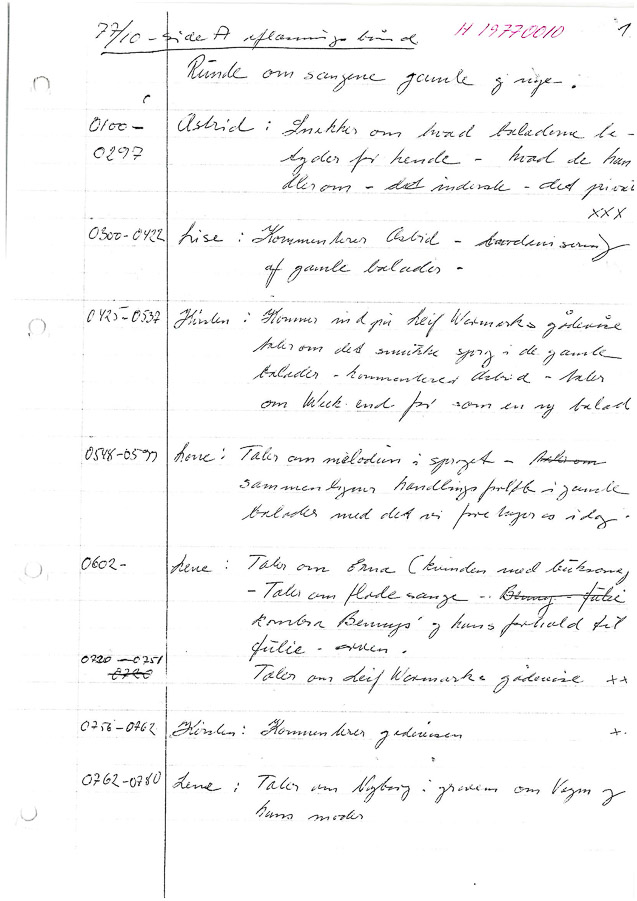 77/10 - side A aflasningsbånd H 19770010 1.
Runde om sangene gamle og nye.
0100- Astrid: Snakker om hvad baladerne be-
0297 tyder for hende - hvad de han
dler om - det inderste - det privat
xxx
0300-0422 Lise: Kommenterer Astrid -
af gamle balader -
0425-0537 Kirsten: Kommer ind på Leif Warmarks gådevise
taler om det smukke sprog i de gamle
balader - kommenterer Astrid - taler
om Week end fri som en ny balad
0548-0599 Lone: Taler om melodien i sproget - taler om
sammenligner handlingsforløb i gamle
balader med det vi foretager os i dag.
0602- Lene: Taler om Erna (kvinden med
- Taler om flade sange - Benny - Julie
kontra Bennys og hans forhold til
Julie -
0720-0751 Taler om Leif Warmarks gådevise xx
0720
0756-0762 Kirsten: Kommenterer gådevisen x.
0762-0780 Lene: Taler om Nyborg i graven om og
hans moder